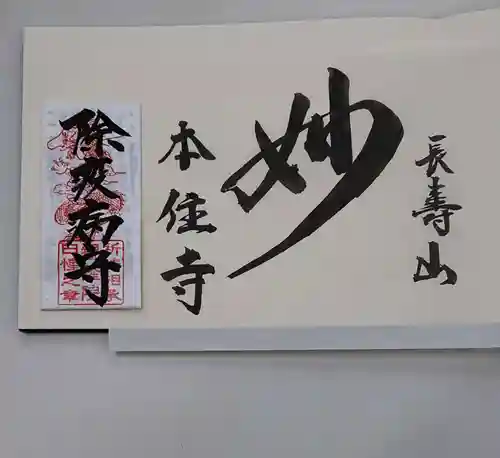 長壽山
妙
本住寺
除疫病守